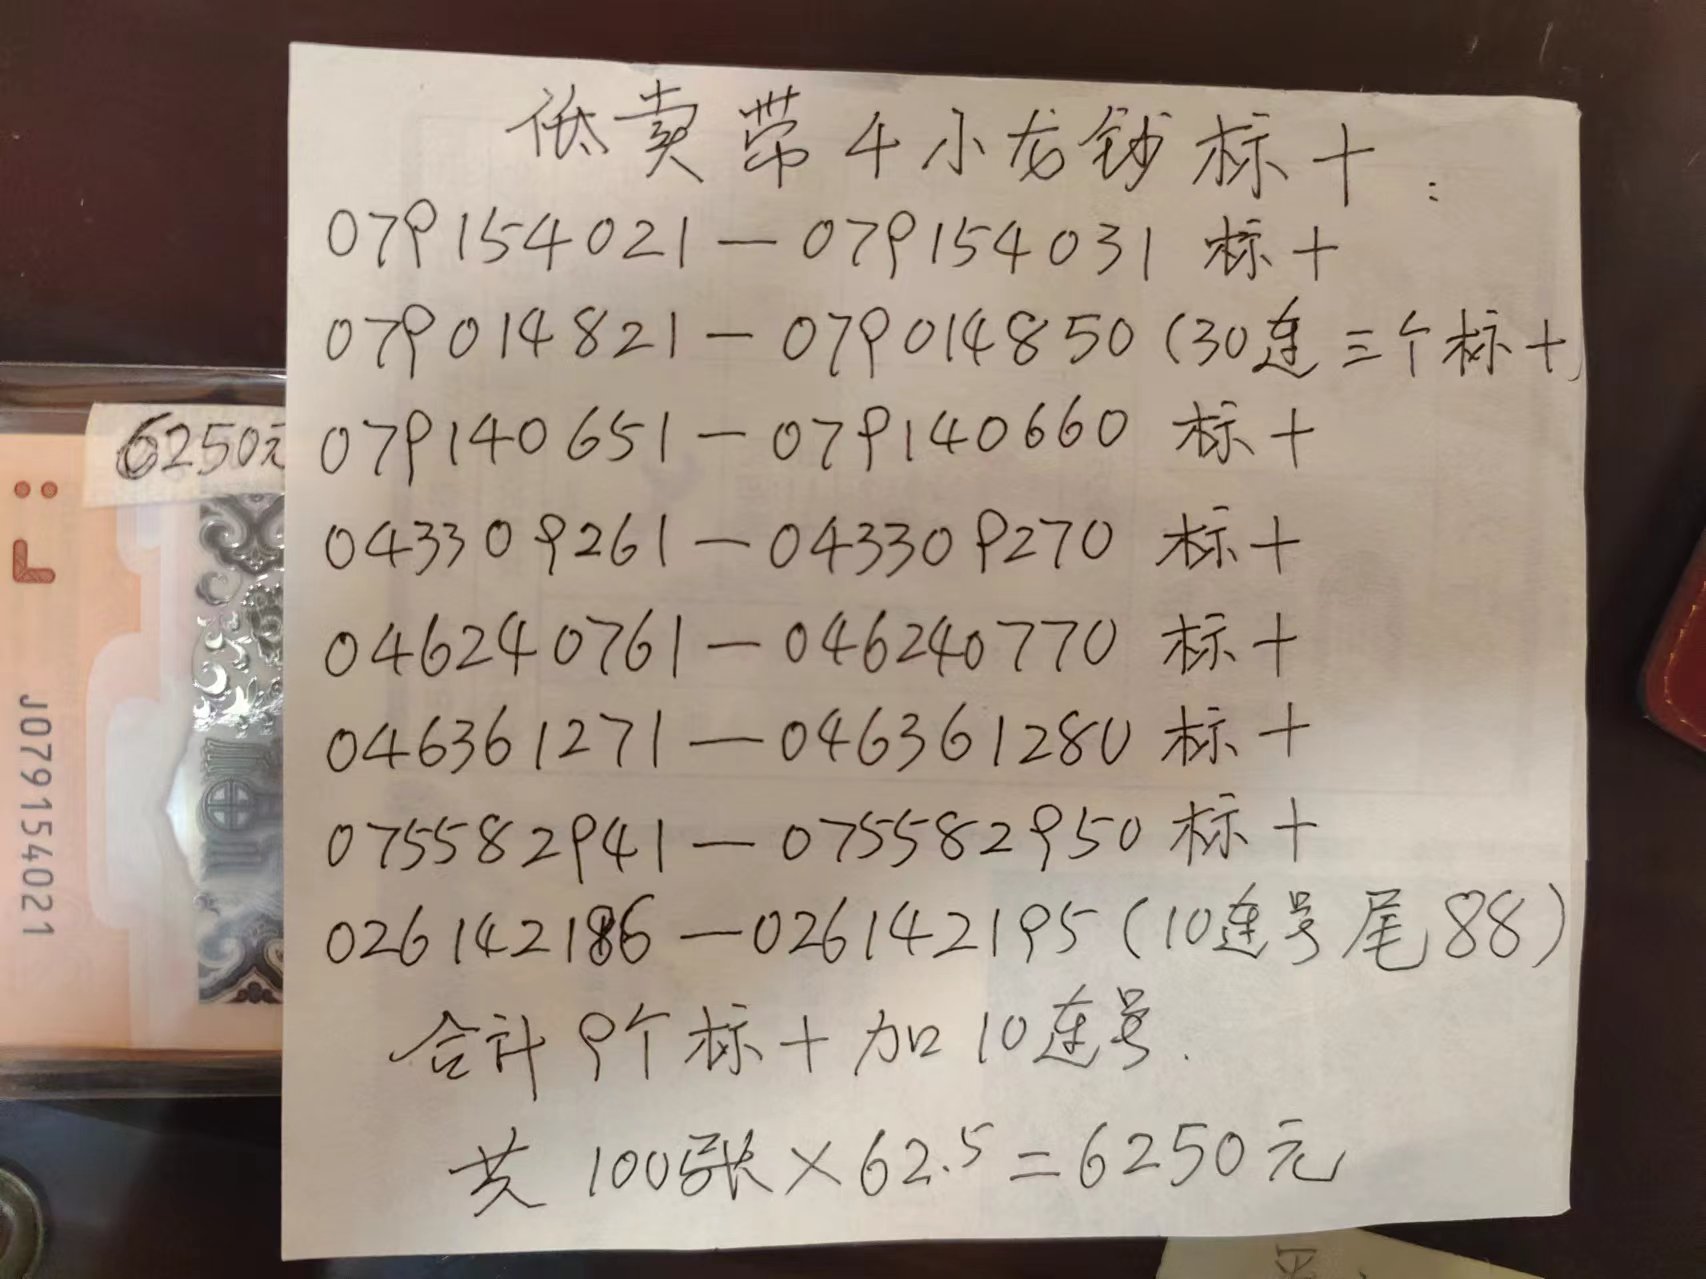 低卖带4小龙钞标十：
079154021—079154031 标十
079014821—079014850（30连三个标十）
6250元
079140651—079140660 标十
043309261—043309270 标十
046240761—046240770 标十
046361271—046361280 标十
075582941—075582950 标十
026142186—026142195（10连号尾88）
合计9个标十加10连号.
共100张×62.5=6250元
J079154021